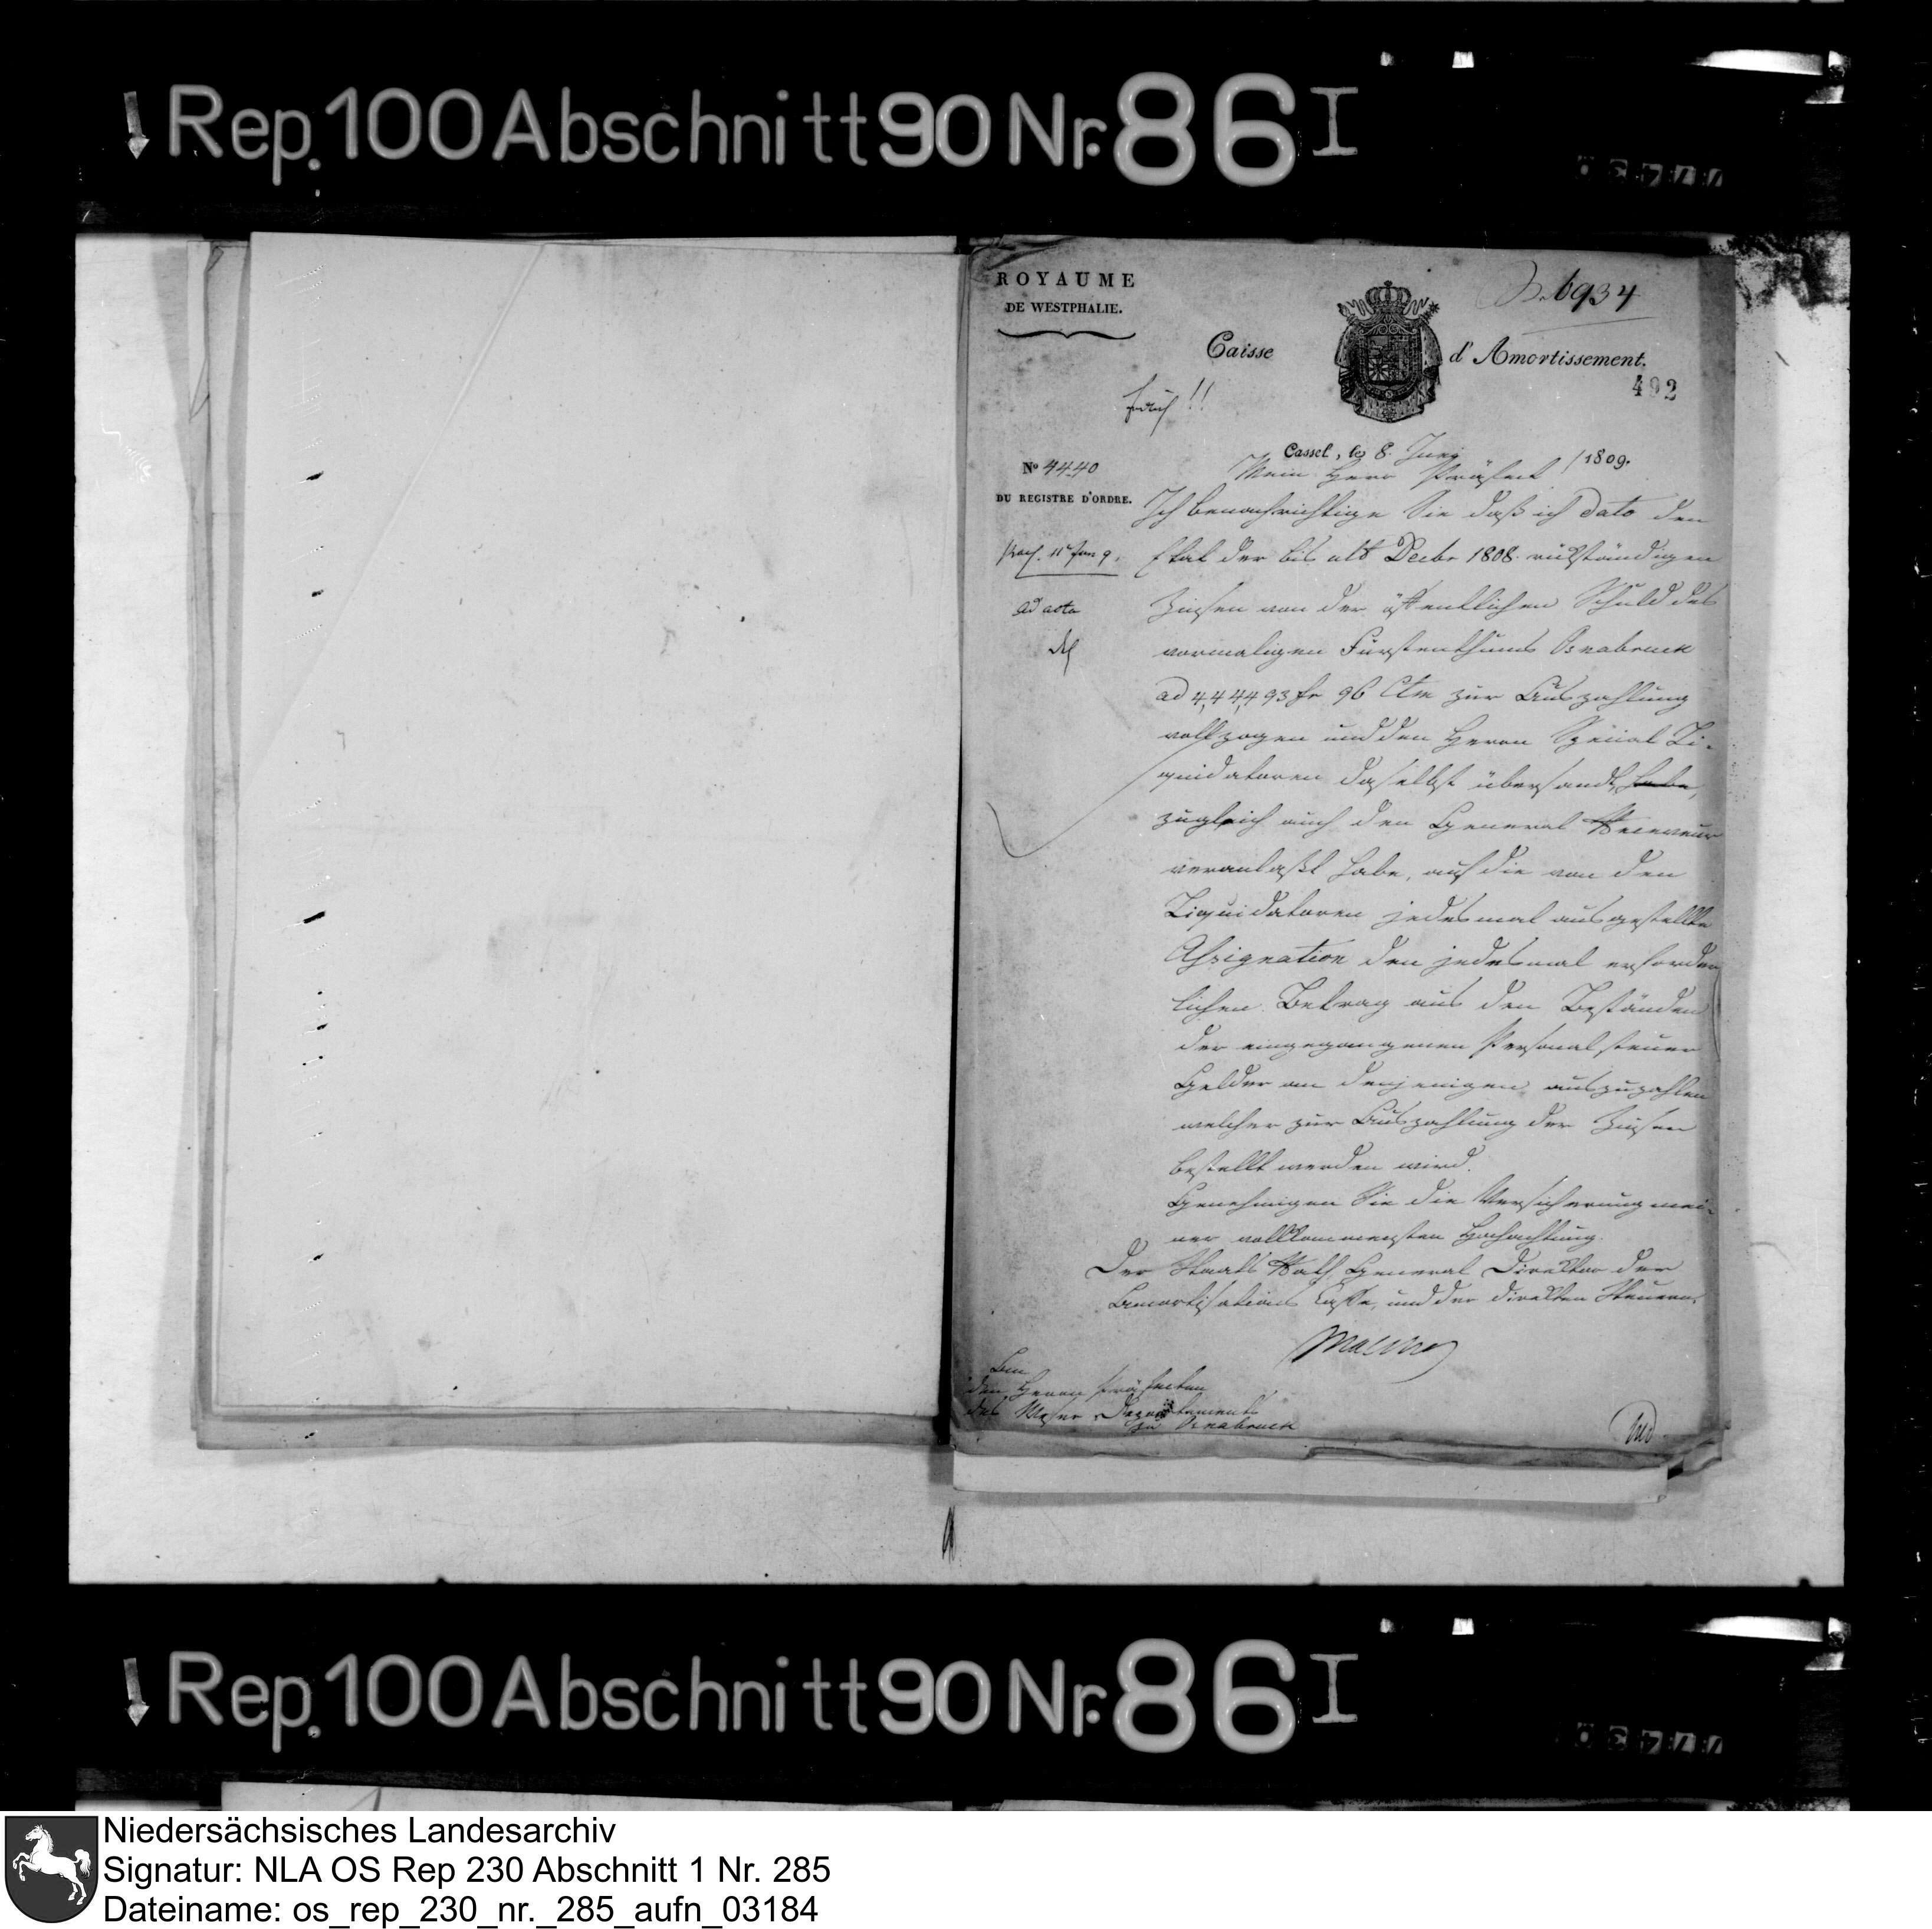 Rep. 100 Abschnitt 90 Nr. 86 I
ROYAUME
DE WESTPHALIE.
6934
Caisse d'Amortissement.
492
Cassel, le 8. Juny 1809.
No 4440
DU REGISTRE D'ORDRE.
Mein Herr Präfect!
Ich benachrichtige Sie daß ich dato den
Etat der bis ult Decbr 1808. rückständigen
Zinsen von der öffentlichen Schuld des
vormaligen Fürstenthums Osnabruck
ad 4,44,493 fr 96 Ctm zur Auszahlung
vollzogen und den Herrn Special Li-
quidatoren daselbst übersandt habe,
zugleich auch den General Receveur
veranlaßt habe, auf die von den
Liquidatoren jedesmal ausgestellte
Assignation den jedesmal erforder
lichen Betrag aus den Beständen
der eingegangenen Personalsteuer
Gelder an denjenigen auszuzahlen
welcher zur Auszahlung der Zinsen
bestellt werden wird.
Genehmigen Sie die Versicherung mei-
ner vollkommensten Hochachtung.
Der Staats Rath, General Direktor der
Amortisations Casse, und der direkten Steuern,
Malchus
ad acta
An
den Herrn Präfecten
des Weser Departements
zu Osnabruck
Rep. 100 Abschnitt 90 Nr. 86 I
Niedersächsisches Landesarchiv
Signatur: NLA OS Rep 230 Abschnitt 1 Nr. 285
Dateiname: os_rep_230_nr._285_aufn_03184